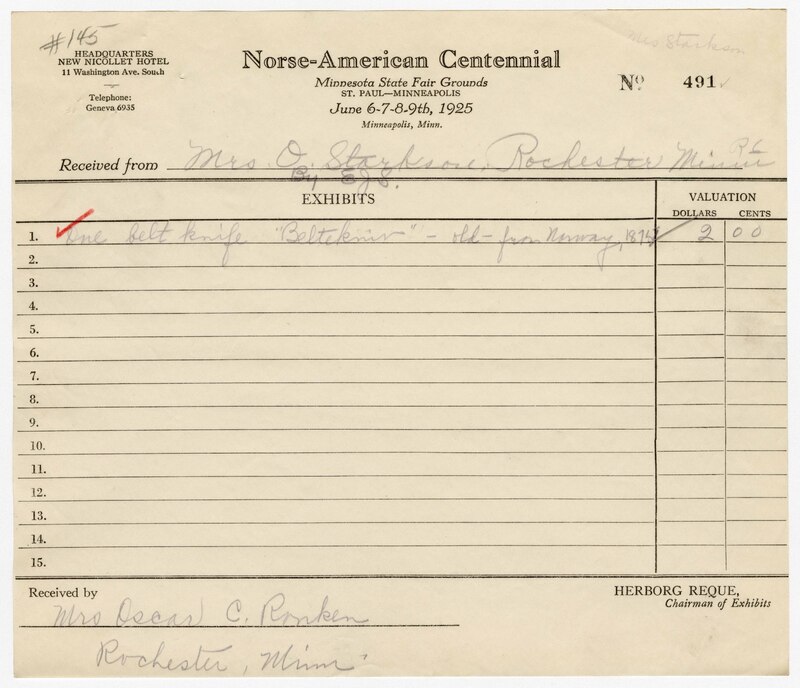 #145
HEADQUARTERS
NEW NICOLLET HOTEL
11 Washington Ave. South
Telephone:
Geneva 6935
Norse-American Centennial
Minnesota State Fair Grounds
ST. PAUL—MINNEAPOLIS
June 6-7-8-9th, 1925
Minneapolis, Minn.
Mrs Starkson
Nº 491
Received from Mrs. O. Starkson, Rochester Minn
By E.J.S.
EXHIBITS
VALUATION
DOLLARS CENTS
1. One belt knife "Beltekniv" - old - from Norway, 2 00
2.
3.
4.
5.
6.
7.
8.
9.
10.
11.
12.
13.
14.
15.
Received by
Mrs Oscar C. Ronken
Rochester, Minn
HERBORG REQUE,
Chairman of Exhibits